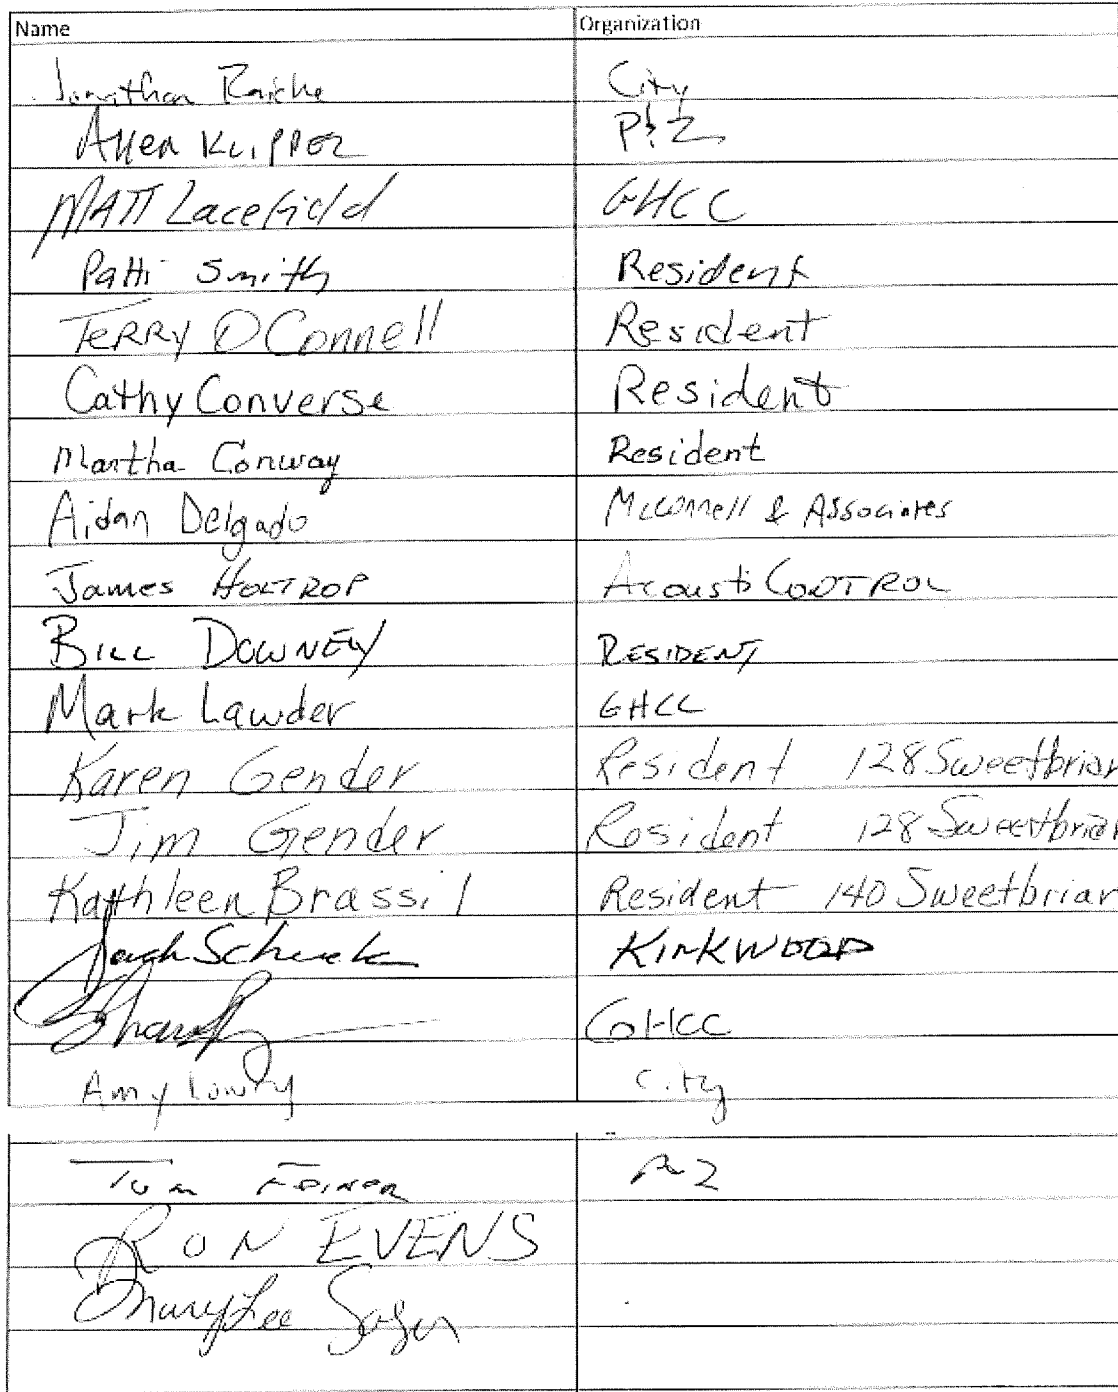 Name Organization
Jonathan Raiche City
Allen Klippel P & Z
MATT Lacefield GHCC
Patti Smith Resident
TERRY O'Connell Resident
Cathy Converse Resident
Martha Conway Resident
Aidan Delgado McConnell & Associates
James HOLTROP Acousti CONTROL
BILL DOWNEY RESIDENT
Mark Lawder GHCC
Karen Gender Resident 128 Sweetbriar
Jim Gender Resident 128 Sweetbriar
Kathleen Brassil Resident 140 Sweetbriar
KIRKWOOD
GHCC
Amy Lowry City
Tom FEINER
RON EVENS
Mary Lee